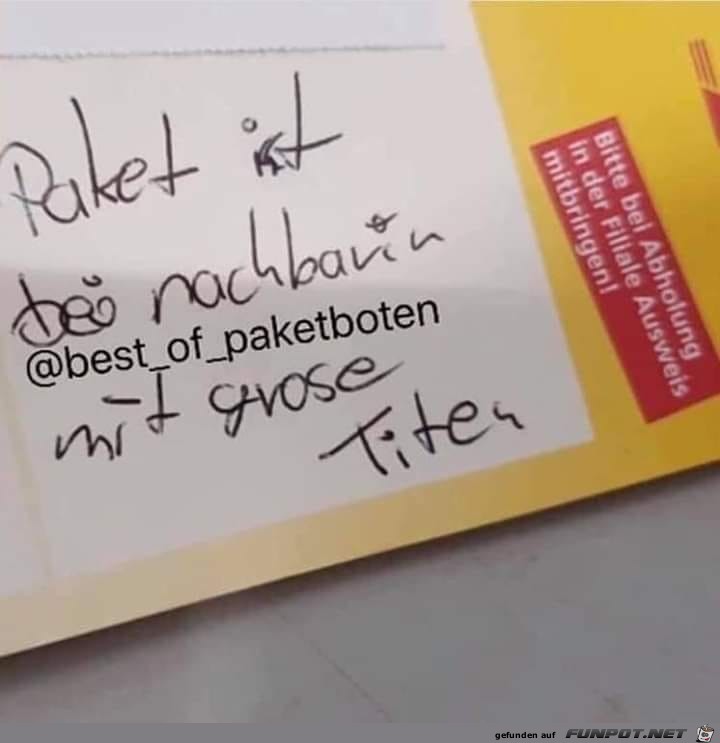 Paket ist
bei nachbarin
@best_of_paketboten
mit grose
Titen
Bitte bei Abholung
in der Filiale Ausweis
mitbringen!
gefunden auf FUNPOT.NET